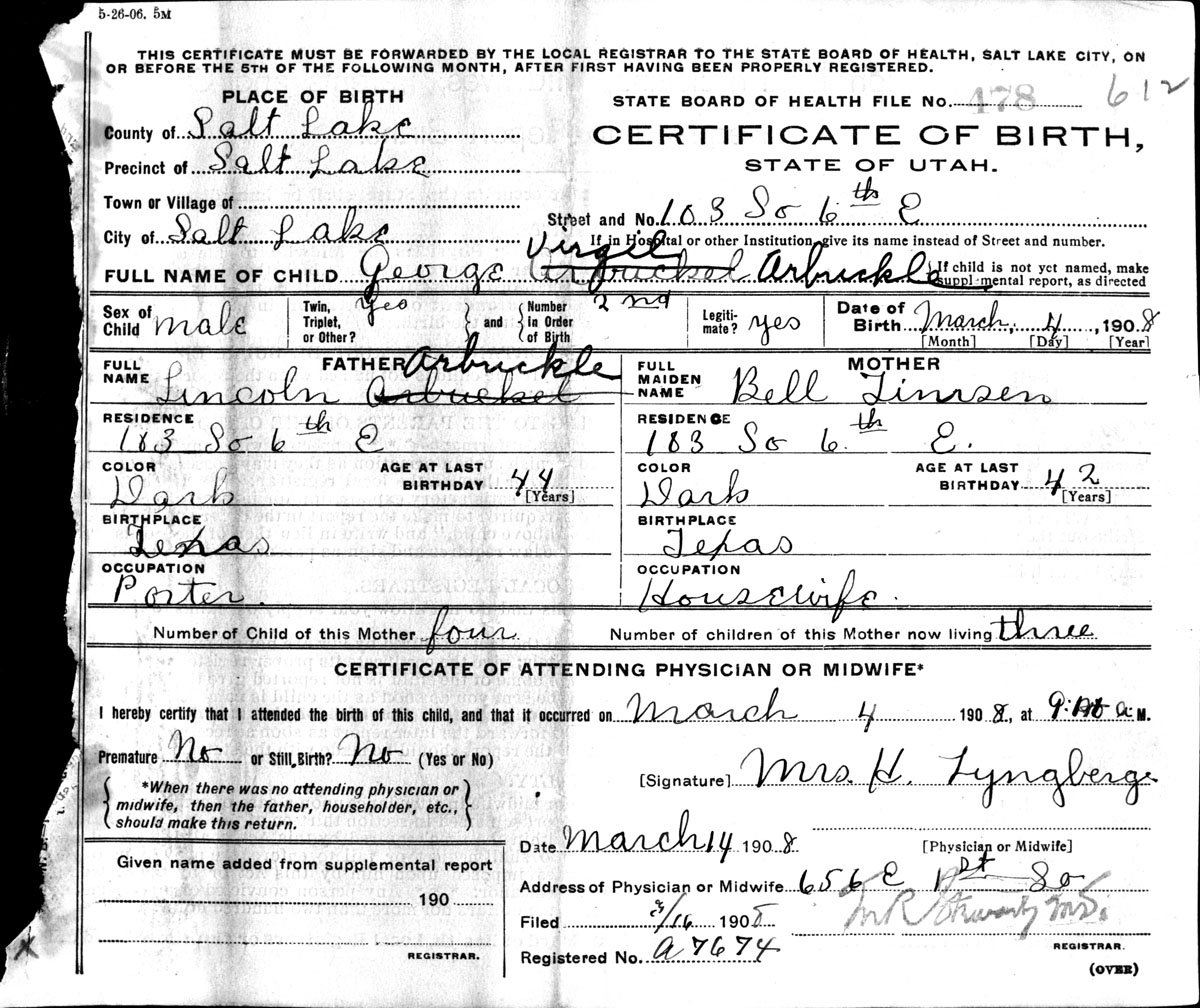 5-26-06. 5M
THIS CERTIFICATE MUST BE FORWARDED BY THE LOCAL REGISTRAR TO THE STATE BOARD OF HEALTH, SALT LAKE CITY, ON
OR BEFORE THE 5TH OF THE FOLLOWING MONTH, AFTER FIRST HAVING BEEN PROPERLY REGISTERED.
PLACE OF BIRTH
STATE BOARD OF HEALTH FILE No. 478 612
County of Salt Lake
CERTIFICATE OF BIRTH,
Precinct of Salt Lake
STATE OF UTAH.
Town or Village of
Street and No. 183 So 6th E
City of Salt Lake
If in Hospital or other Institution give its name instead of Street and number.
Virgil
FULL NAME OF CHILD George Arbuckel Arbuckle
If child is not yet named, make
supplemental report, as directed
Sex of Child male
Twin, Triplet, or Other? Yes
and Number in Order of Birth 2nd
Legitimate? yes
Date of Birth March, 4, 1908
[Month] [Day] [Year]
FATHER Arbuckle
FULL NAME Lincoln Arbuckel
MOTHER
FULL MAIDEN NAME Bell
RESIDENCE
183 So 6th E
RESIDENCE
183 So 6th E.
COLOR
Dark
AGE AT LAST BIRTHDAY 44
[Years]
COLOR
Dark
AGE AT LAST BIRTHDAY 42
[Years]
BIRTHPLACE
Texas
BIRTHPLACE
Texas
OCCUPATION
Porter.
OCCUPATION
Housewife.
Number of Child of this Mother four
Number of children of this Mother now living three
CERTIFICATE OF ATTENDING PHYSICIAN OR MIDWIFE*
I hereby certify that I attended the birth of this child, and that it occurred on March 4 1908, at 9: a M.
Premature No or Still Birth? No (Yes or No)
[Signature] Mrs. H. Lyngberge
*When there was no attending physician or
midwife, then the father, householder, etc.,
should make this return.
Date March 14 1908
[Physician or Midwife]
Given name added from supplemental report
190
REGISTRAR.
Address of Physician or Midwife 656 E 1st So
Filed 3/16 1908
M.D.
REGISTRAR.
Registered No. a7674
(OVER)